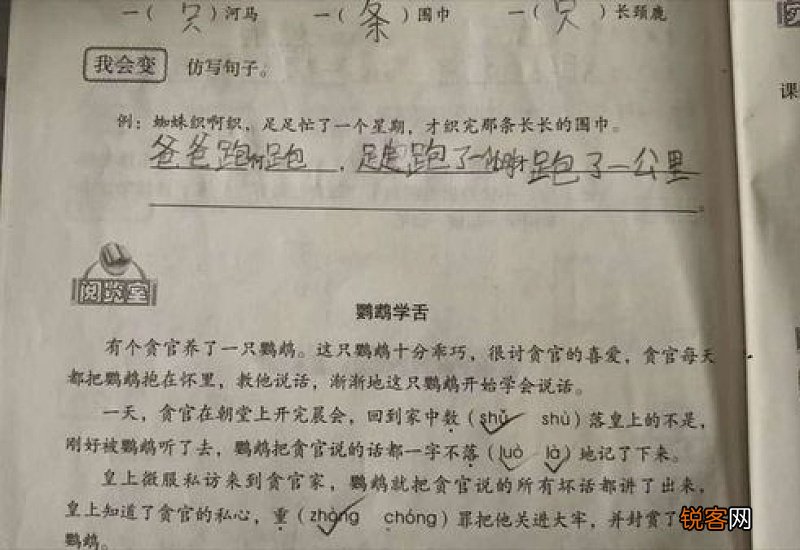 一（只）河马　一（条）围巾　一（只）长颈鹿
我会变　仿写句子。
课
例：蜘蛛织啊织，足足忙了一个星期，才织完那条长长的围巾。
爸爸跑啊跑，足足跑了一 跑了一公里。
阅览室
鹦鹉学舌
有个贪官养了一只鹦鹉。这只鹦鹉十分乖巧，很讨贪官的喜爱，贪官每天
都把鹦鹉抱在怀里，教他说话，渐渐地这只鹦鹉开始学会说话。
一天，贪官在朝堂上开完晨会，回到家中数（shǔ　shù）落皇上的不是，
刚好被鹦鹉听了去，鹦鹉把贪官说的话都一字不落（luò　là）地记了下来。
皇上微服私访来到贪官家，鹦鹉就把贪官说的所有坏话都讲了出来，
皇上知道了贪官的私心，重（zhòng　chóng）罪把他关进大牢，并封赏了
鹦鹉。
锐客网